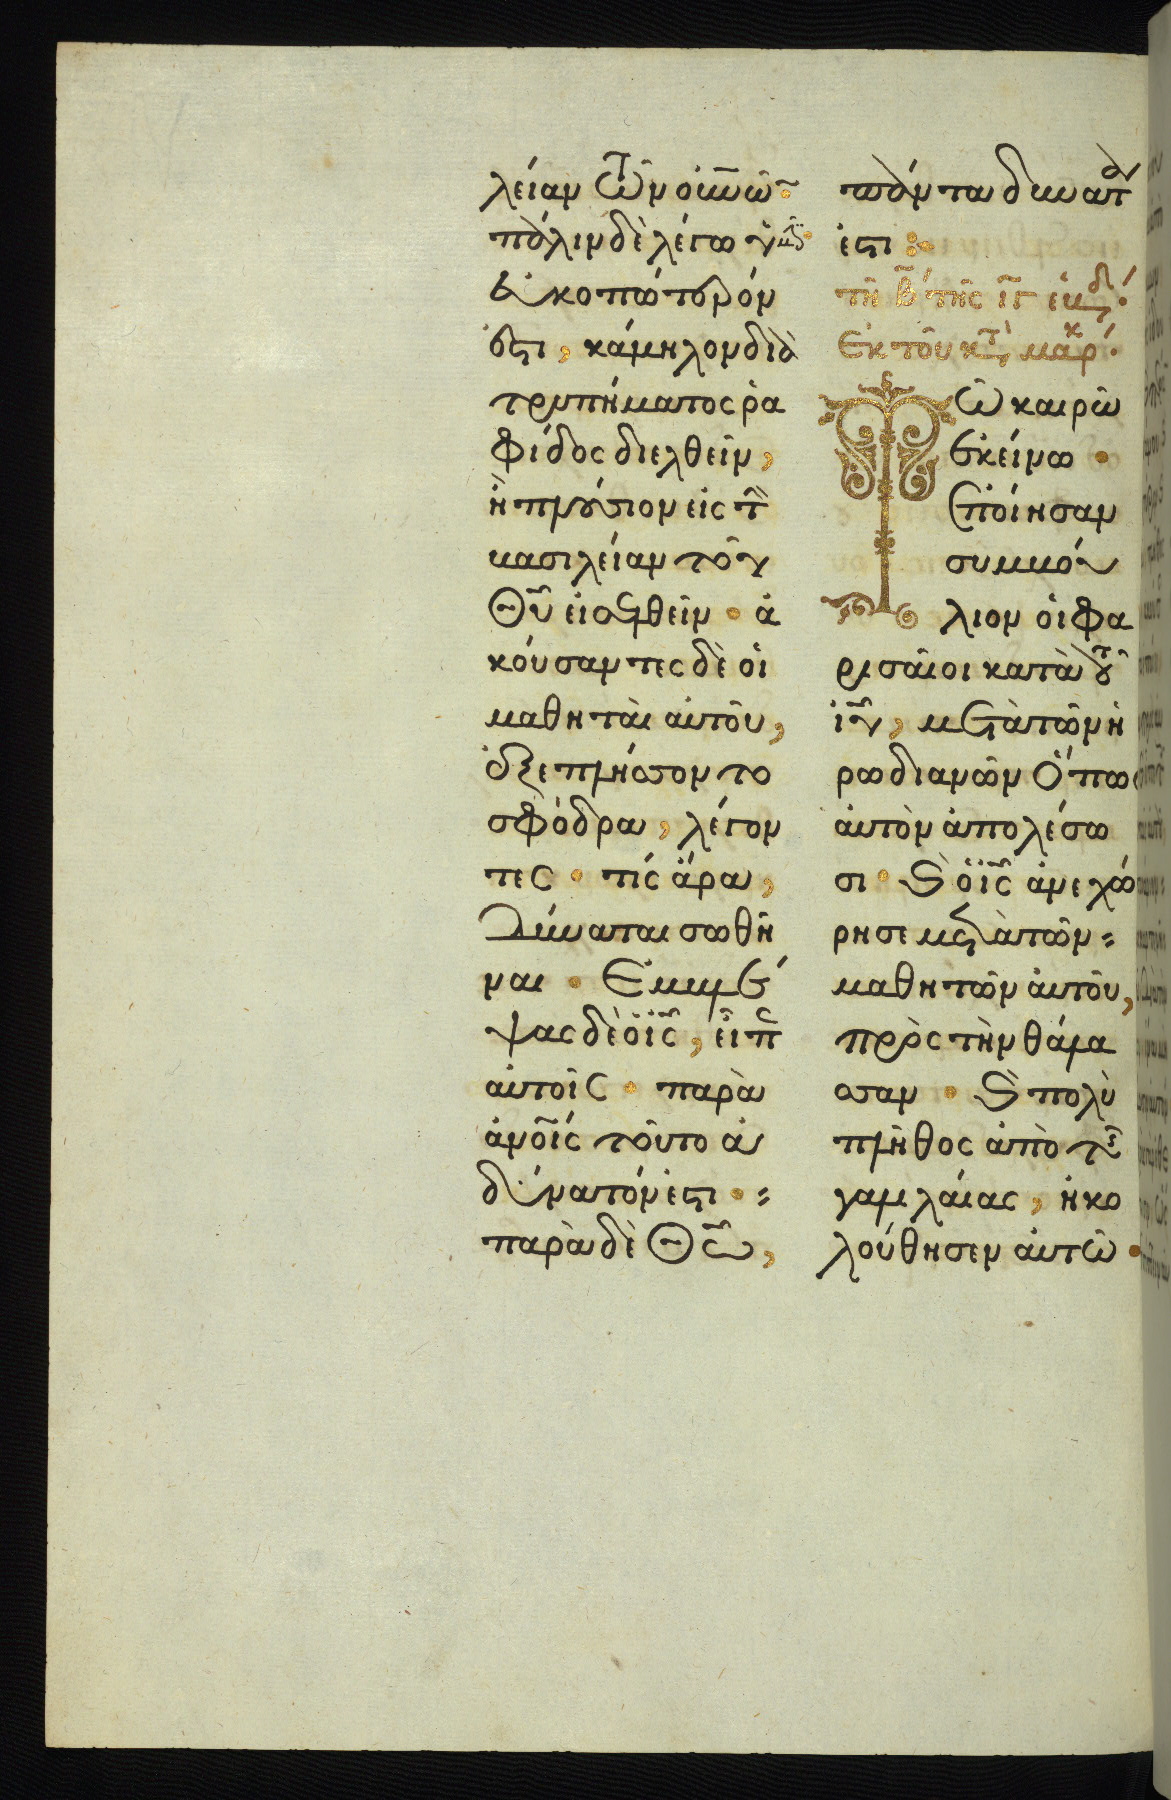 λείαν τῶν οὐνῶν·
πάλιν δὲ λέγω ὑμῖν·
εὐκοπώτερόν
ἐστι, κάμηλον διὰ
τρυπήματος ῥα
φίδος διελθεῖν,
ἢ πλούσιον εἰς τὴν
βασιλείαν τοῦ
Θῦ εἰσελθεῖν· ἀ
κούσαντες δὲ οἱ
μαθηταὶ αὐτοῦ,
ἐξεπλήσσοντο
σφόδρα, λέγον
τες· τίς ἄρα,
δύναται σωθῆ
ναι· Ἐμβλέ
ψας δὲ ὁ ἰς, εἶπεν
αὐτοῖς· παρὰ
ἀνοις τοῦτο ἀ
δύνατόν ἐστι·
παρὰ δὲ Θῶ,
πάντα δυνατά
ἐστι:
τῇ β τῆς ιγ εβδ·
Ἐκ τοῦ κτ μαρκ·
Τῶ καιρῶ
ἐκείνω·
ἐποίησαν
συμβού
λιον οἱ φα
ρισαῖοι κατὰ τοῦ
ἰῦ, μετὰ τῶν ἡ
ρωδιανῶν ὅπως
αὐτὸν ἀπολέσω
σι· καὶ ὁ ἰς ἀνεχώ
ρησε μετὰ τῶν
μαθητῶν αὐτοῦ,
πρὸς τὴν θάλα
σσαν· καὶ πολὺ
πλῆθος ἀπὸ τῆς
γαλιλαίας, ἠκο
λούθησεν αὐτῶ·